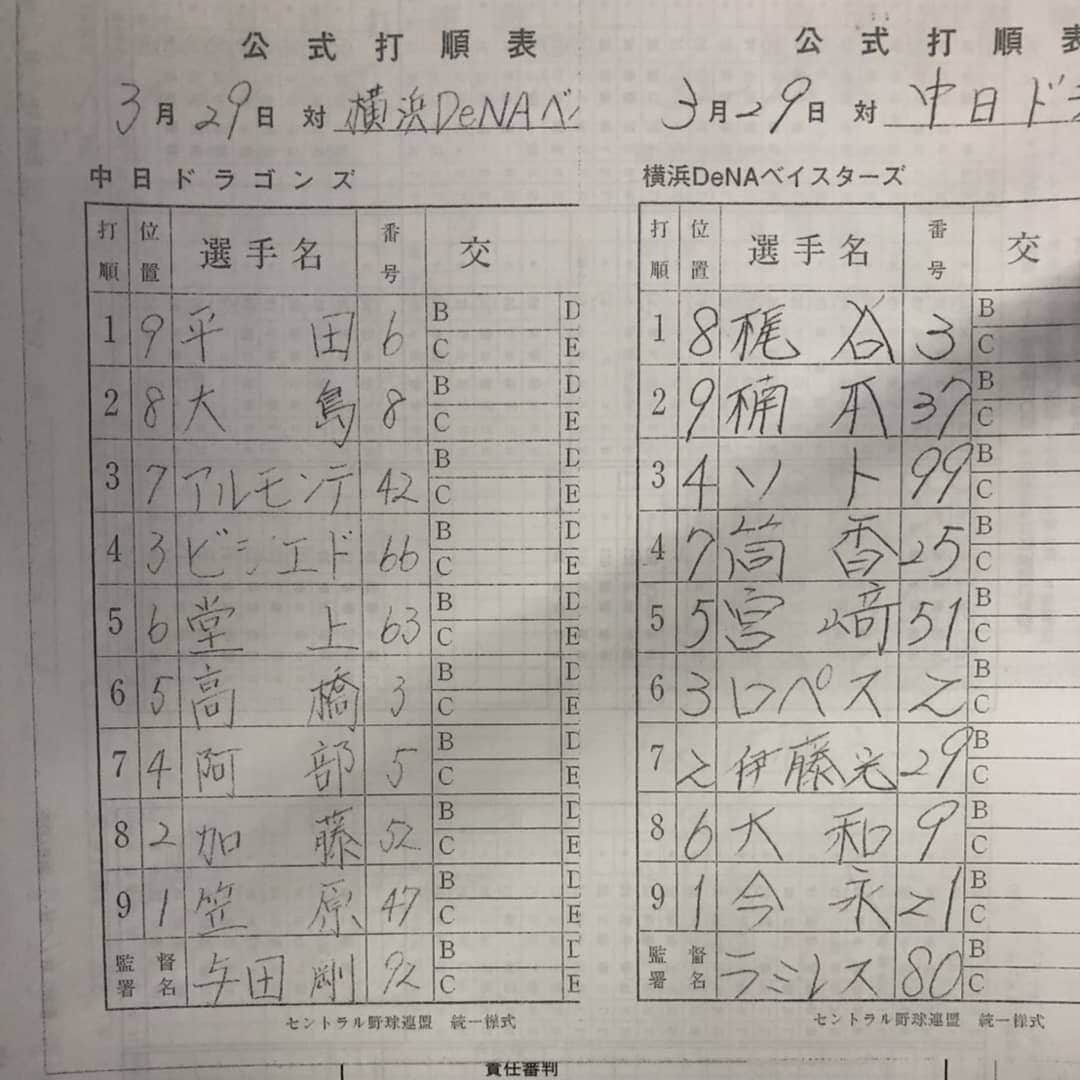 公式打順表
3月29日 対 横浜DeNAベ
中日ドラゴンズ
打順 位置 選手名 番号 交
1 9 平田 6 B C D E
2 8 大島 8 B C D E
3 7 アルモンテ 42 B C D E
4 3 ビシエド 66 B C D E
5 6 堂上 63 B C D E
6 5 高橋 3 B C D E
7 4 阿部 5 B C D E
8 2 加藤 52 B C D E
9 1 笠原 47 B C D E
監督署名 与田剛 92 B C D E
セントラル野球連盟 統一様式
公式打順表
3月29日 対 中日ドラ
横浜DeNAベイスターズ
打順 位置 選手名 番号 交
1 8 梶谷 3 B C
2 9 楠本 37 B C
3 4 ソト 99 B C
4 7 筒香 25 B C
5 5 宮﨑 51 B C
6 3 ロペス 2 B C
7 2 伊藤光 29 B C
8 6 大和 9 B C
9 1 今永 21 B C
監督署名 ラミレス 80 B C
セントラル野球連盟 統一様式
責任審判